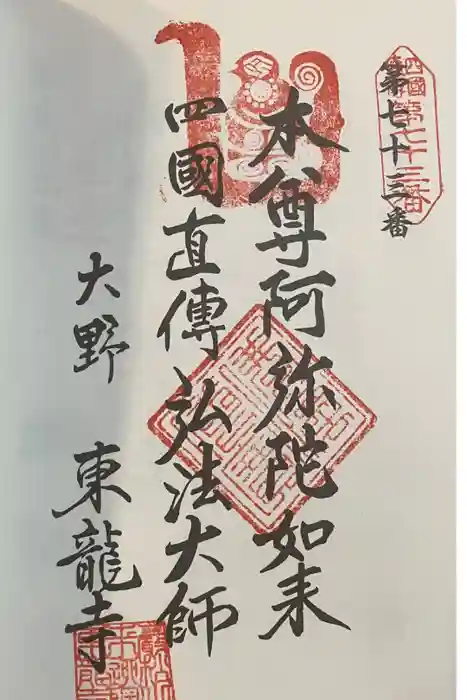 四國第七十三番
第七十三番
本尊阿弥陀如来
四國直傳弘法大師
大野 東龍寺